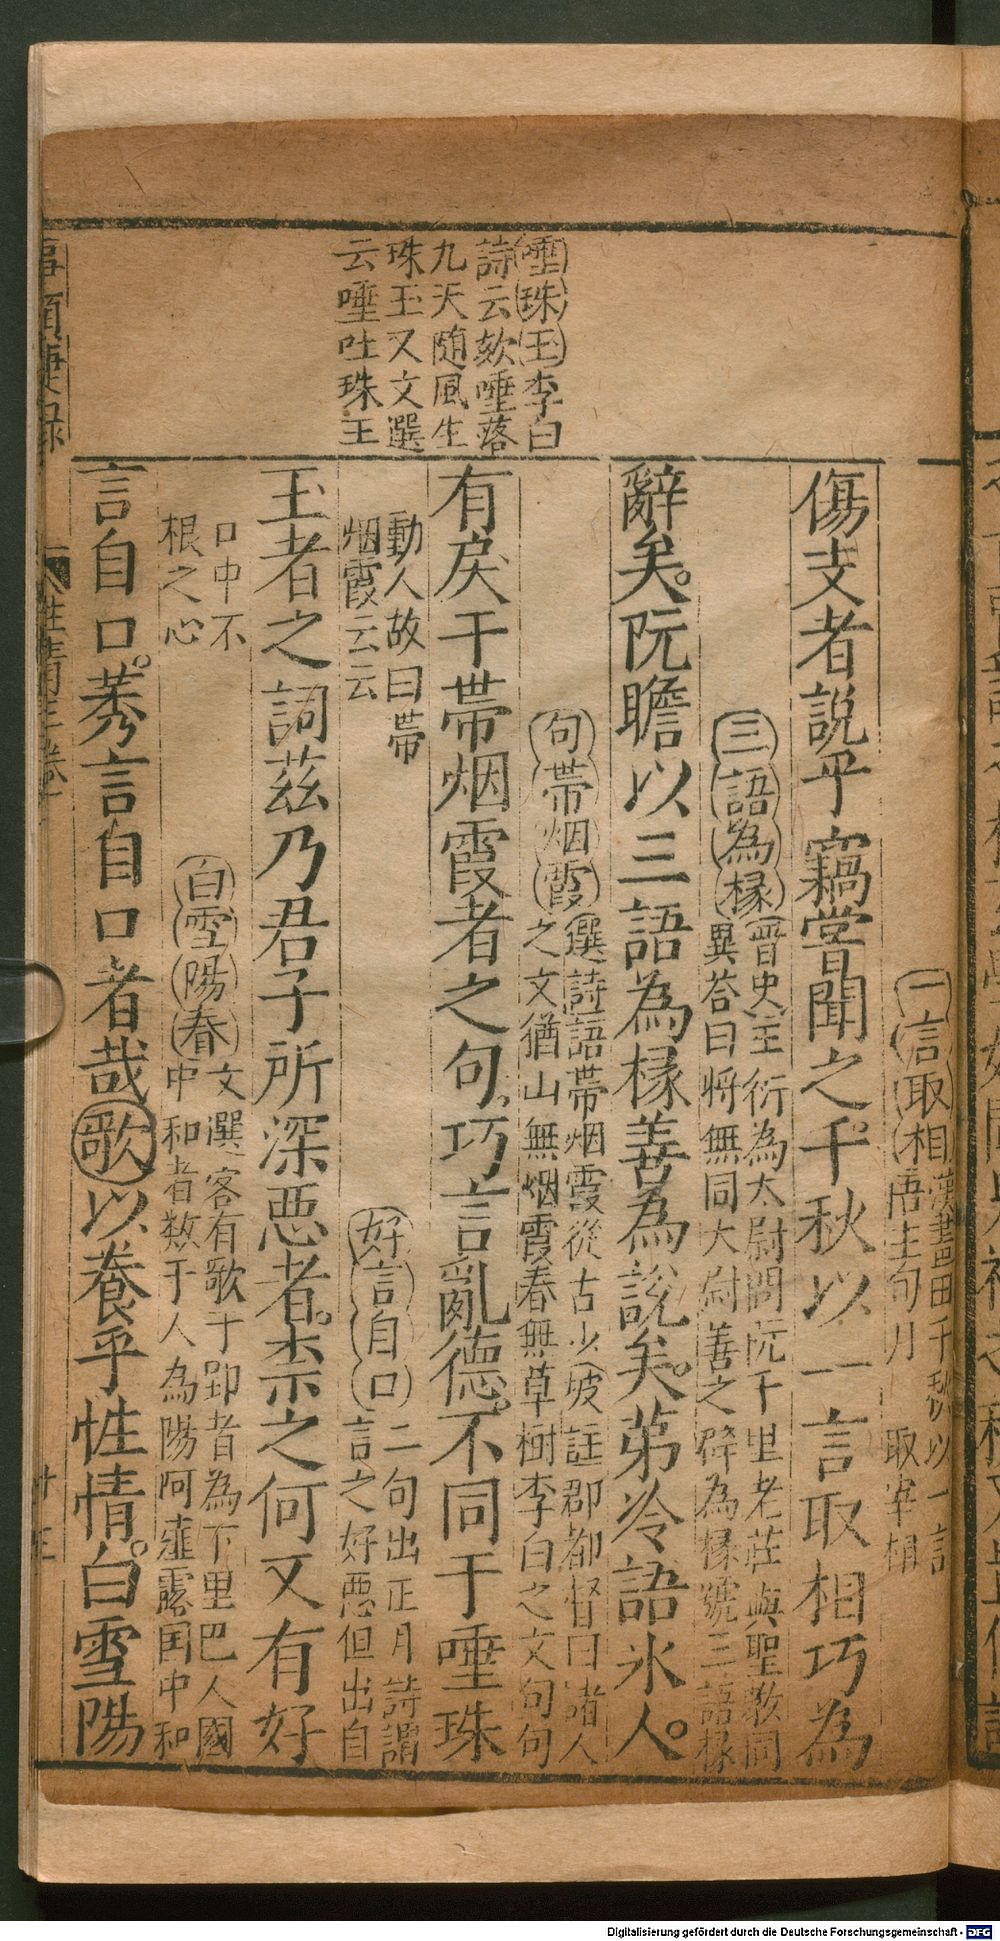 唾珠玉李白
詩云欬唾落
九天隨風生
珠玉又文選
云唾吐珠玉
一言取相漢書田千秋以一言
悟主旬月取宰相
傷支者說乎竊嘗聞之千秋以一言取相巧為
三語為椽晉史王衍為太尉問阮千里老莊與聖教同
異荅曰将無同大尉善之辟為椽號三語椽
辭矣阮瞻以三語為椽善為說矣苐冷語氷人
句帯烟霞選詩語帯烟霞從古少坡註郡都督曰諸人
之文猶山無烟霞春無草樹李白之文句句
有戾于帯烟霞者之句巧言亂德不同于唾珠
動人故曰帯
烟霞云云
好言自口二句出正月詩謂
言之好惡但出自
玉者之詞茲乃君子所深惡者柰之何又有好
口中不
根之心
白雪陽春文選客有歌于郢者為下里巴人國
中和者数千人為陽阿薤露国中和
言自口莠言自口者哉歌以養乎性情白雪陽
性情三卷
廿三
Digitalisierung gefördert durch die Deutsche Forschungsgemeinschaft - DFG